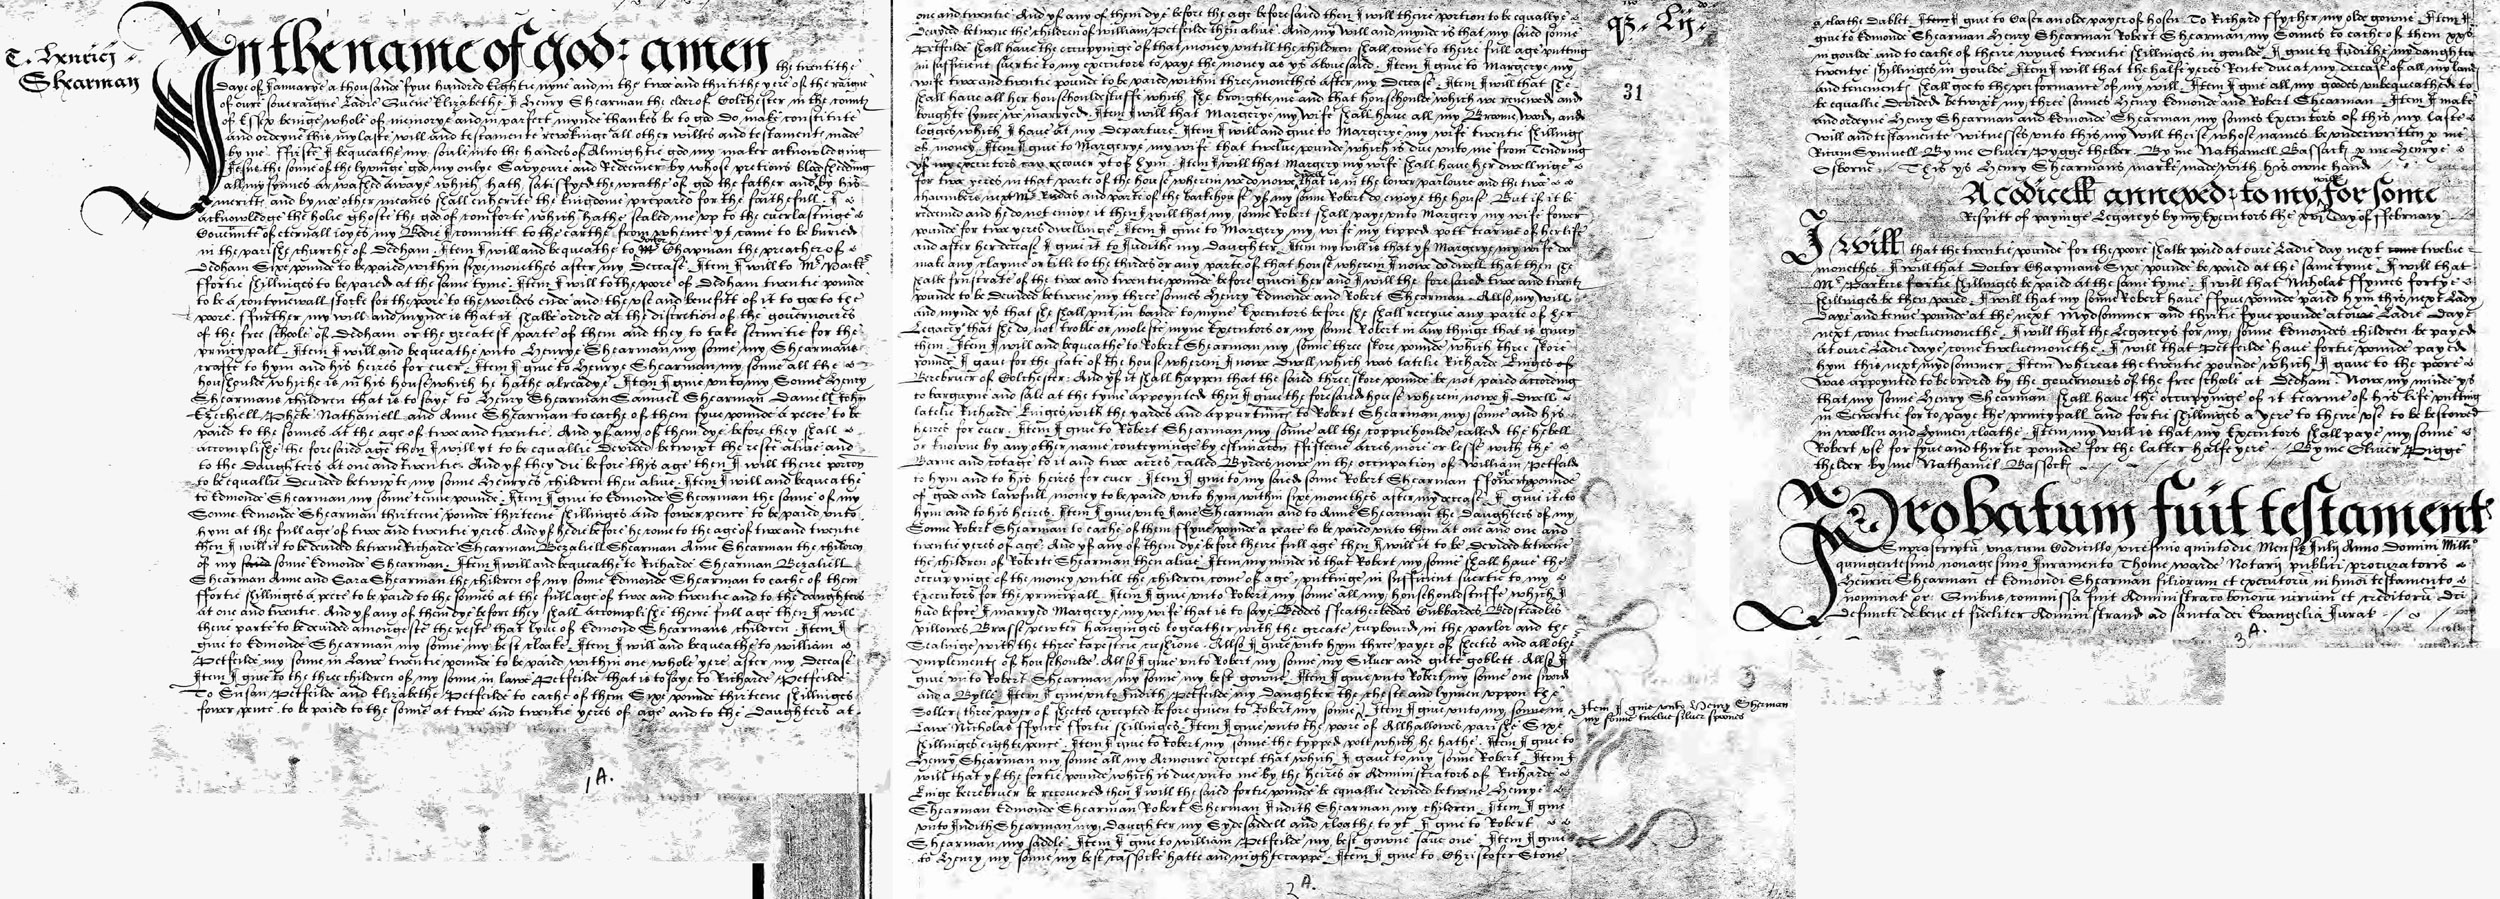 T. Henrici
Shearman
In the name of god: amen the twentithe
daye of Januarye a thousande fyve hundred Eightie nyne and in the twoe and thirtithe yere of the raigne
of oure soveraigne Ladie Quene Elizabethe I Henry Shearman the elder of Colchester in the countye
of Essex beinge whole of memorye and in parfect mynde thankes be to god do make constitute
and ordeyne this my laste will and testamente revokinge all other willes and testamentes made
by me. ffirste I bequeathe my soule into the handes of Almightie god my maker acknowledging
Jesus the sonne of the lyvinge god my onlye Savyoure and Redemer by whose pretious bloodsheddinge
all my synnes ar washed awaye which hath satisfyed the wrathe of god the father and by his
meritts and by noe other meanes shall enherite the kingdome prepared for the faithefull. I
acknowledge the holie ghoste the god of comforte which hathe sealed me vp to the everlastinge
Covenante of eternall ioyes my Bodie I committ to the earthe from whence yt came to be buried
in the parishe churche of Dedham. Item I will and bequeathe to Mr doctor Chapman the preacher of
Dedham Sixe pounde to be paied within sixe monethes after my Decease. Item I will to Mr Parker
ffortie shillinges to be paied at the same tyme. Item I will to the poore of Dedham twentie pounde
to be a contynewall stocke for the poore to the worldes ende and the vse and benefitt of it to goe to the
poore. ffurther my will and mynde is that it shalbe ordred at the discretion of the governoures
of the free schole of Dedham or the greatest parte of them and they to take securitie for the
princypall. Item I will and bequeathe vnto Henrye Shearman my sonne my Shearmans
crafte to hym and his heires for ever. Item I give to Henrye Shearman my sonne all the
houshoulde whiche is in his house which he hathe alreadye. Item I give vnto my Sonne Henry
Shearmans children that is to saye to Henry Shearman Samuel Shearman Daniell John
Ezechiell Phebe Nathaniell and Anne Shearman to eache of them fyve pounde a peece to be
paied to the sonnes at the age of twoe and twentie. And yf any of them dye before they shall
accomplishe the foresaied age then I will yt to be equallie devided betwixt the reste alive and
to the Daughters at one and twentie. And yf they die before this age then I will theire porcon
to be equallie devided betwixte my sonne Henryes children then alive. Item I will and bequeathe
to Edmonde Shearman my sonne tenne pounde. Item I give to Edmonde Shearman the sonne of my
Sonne Edmonde Shearman thirteene pounde thirteene shillinges and fower pence to be paied vnto
hym at the full age of twoe and twentie yeres. And yf he die before he come to the age of twoe and twentie
then I will it to be devided betwene Richarde Shearman Bezaliell Shearman Anne Shearman the children
of my said sonne Edmonde Shearman. Item I will and bequeathe to Richarde Shearman Bezaliell
Shearman Anne and Sara Shearman the children of my sonne Edmonde Shearman to eache of them
ffortie shillinges a peece to be paied to the sonnes at the full age of twoe and twentie and to the daughters
at one and twentie. And yf any of them dye before they shall accomplishe theire full age then I will
theire parte to be devided amongeste the reste that lyve of Edmond Shearmans children. Item I
give to Edmonde Shearman my sonne my best cloake. Item I will and bequeathe to william
Petfeilde my sonne in Lawe twentie pounde to be paied within one whole yere after my Decease.
Item I give to the three children of my sonne in lawe Petfeilde that is to saye to Richarde Petfeilde
To Susan Petfeilde and Elizabethe Petfeilde to eache of them Sixe pounde thirteene shillinges
fower pence to be paied to the sonne at twoe and twentie yeres of age and to the Daughters at
1 A.
one and twentie. And yf any of them dye before the age before saied then I will theire portion to be equallye
devyded betwene the children of william Petfeilde then alive. And my will and mynde is that my saied sonne
Petfeilde shall have the occupyinge of that money untill the children shall come to theire full age putting
in sufficient suertie to my executors to paye the money as ys abovesaied. Item I give to Margerye my
wife twoe and twentie pounde to be paied within three monethes after my Decease. Item I will that she
shall have all her houshouldestuffe which she broughte me and that houshoulde which we renewed and
boughte synce we marryed. Item I will that Margerye my wife shall have all my Broome wood and
logges which I have at my departure. Item I will and give to Margerye my wife twentie shillings
of money. Item I give to Margerye my wife that twelve pounde which is due vnto me from Tendring
yf my executors can recover yt of hym. Item I will that Margery my wife shall have her dwellinge
for twoe yeres in that parte of the house wherein we do nowe dwell that is in the lower parloure and the twoe
chaumbers next Mr Ruddes and parte of the backhouse yf my sonne Robert do enioye the house. But if it be
redemed and he do not enioye it then I will that my sonne Robert shall paye vnto Margery my wife fower
pounde for twoe yeres dwellinge. Item I give to Margery my wife my tipped pott tearme of her life
and after her decease I give it to Judithe my Daughter. Item my will is that yf Margerye my wife do
make any clayme or title to the thirdes or any parte of that house wherein I nowe do dwell that then she
shalbe frustrate of the twoe and twentie pounde before given her and I will the foresaied twoe and twentie
pounde to be devided betwene my three sonnes Henry Edmonde and Robert Shearman. Allso my will
and mynde ys that she shall putt in bande to myne Executors before she shall receyve any parte of her
Legacye that she do not troble or moleste myne Executors or my sonne Robert in any thinge that is given
them. Item I will and bequeathe to Robert Shearman my sonne three skore pounde which three skore
pounde I gave for the state of the house wherein I nowe dwell which was latelie Richarde Kinges of
Beerebruer of Colchester. And yf it shall happen that the saied three skore pounde be not paied according
to bargayne and sale at the tyme appoynted then I give the foresaied house wherein nowe I dwell
latelie Richarde Kinges with the yardes and appurtinances to Robert Shearman my sonne and his
heires for ever. Item I give to Robert Shearman my sonne all the coppiehoulde called the Hybell
or knowne by any other name conteyninge by estimacon ffifteene acres more or lesse with the
Barne and cotage to it and twoe acres called Byrdes nowe in the occupation of William Petfeilde
to hym and to his heires for ever. Item I give to my saied sonne Robert Shearman ffower pounde
of god and lawfull money to be paied vnto hym within sixe monethes after my decease. I give it to
hym and to his heires. Item I give vnto Jane Shearman and to Anne Shearman the Daughters of my
Sonne Robert Shearman to eache of them ffyve pounde a peece to be paied vnto them at one and
twentie yeres of age. And yf any of them dye before theire full age then I will it to be devided betwene
the children of Roberte Shearman then alive. Item my minde is that Robert my sonne shall have the
occupyinge of the money untill the children come of age, puttinge in sufficient suertie to my
Executors for the principall. Item I give vnto Robert my sonne all my houshouldstuffe which I
had before I marryed Margerye my wife that is to saye Beddes ffeatherbeddes Cubbardes Bedsteadles
pillowes Brasse pewter hanginges togeather with the greate cupbourd in the parlor and the
Sealinge with the three tapestrie cusshions. Allso I give vnto hym three payer of sheetes and all other
ymplements of houshoulde. Allso I give vnto Robert my sonne my Silver and gilte goblett. Allso I
give vnto Robert Shearman my sonne my best gowne. Item I give vnto Robert my sonne one sword
and a Bylle. Item I give vnto Judith Petfeilde my daughter the cheste and lynnen vppon the
Soller three payer of sheetes excepted before given to Robert my sonne. Item I give vnto my sonne in
Lawe Nicholas ffynce ffortie shillinges. Item I give vnto the poore of Allhallowes parishe Sixe
shillinges eighte pence. Item I give to Robert my sonne the typped pott which he hathe. Item I give to
Henry Shearman my sonne all my Armoure except that which I gave to my sonne Robert. Item I
will that yf the fortie pounde which is due vnto me by the heires or Administrators of Richarde
Kinge beerebruer be recovered then I will the saied fortie pounde be equallie devided betwene Henrye
Shearman Edmonde Shearman Robert Sherman Judith Shearman my children. Item I give
vnto Judith Shearman my Daughter my Sydesaddell and cloathe to yt. I give to Robert
Shearman my saddle. Item I give to william Petfeilde my best gowne save one. Item I give
to Henry my sonne my best cassocke hatte and nightcappe. Item I give to Christofer Stone
Item I give vnto Henry Shearman
my sonne twelve silver spones
31
2 A.
a cloathe dublet. Item I give to Vaser an olde payer of hosen. To Richard ffysher my olde gowne. Item I
give to Edmonde Shearman Henry Shearman Robert Shearman my Sonnes to eache of them xxs
in goulde and to eache of theire wyves twentie shillinges in goulde. I give to Judithe my daughter
twentye shillinges in goulde. Item I will that the halfe yeres Rente due at my decease of all my land
and tenement shall goe to the performance of my will. Item I give all my goodes vnbequeathed to
be equallie devided betwixt my three sonnes Henry Edmonde and Robert Shearman. Item I make
and ordeyne Henry Shearman and Edmonde Shearman my sonnes Executors of this my laste
will and testamente witnesses vnto this my will theise whose names be vnderwritten p me
Ricum Symnell By me Oliver Pygge thelder. By me Nathaniell Bassock p me Henrye
Osborne. This ys Henry Shearmans marke made with his owne hand
A codicell annexed to my will for some
Respitt of payinge Legaceys by my Executors the xvi Day of ffebruary
I will that the twentie pounde for the poore shalbe paied at oure Ladie day next come twelve
monethes. I will that Doctor Chapmans Sixe pounde be paied at the same tyme. I will that
Mr Parkers fortie shillinges be paied at the same tyme. I will that Nicholas ffynces fortye
shillinges be then paied. I will that my sonne Robert have ffyve pounde paied hym this next Lady
Daye and tenne pounde at the next Mydsommer and thirtie fyve pounde at oure Ladie Daye
next come twelvemonethe. I will that the Legaceys for my sonne Edmondes children be payed
at oure Ladie daye come twelvemonethe. I will that Petfeilde have fortie pounde payed
hym this next mydsommer. Item whereas the twentie pounde which I gave to the poore
was appoynted to be ordred by the governours of the free schoole at Dedham. Nowe my minde ys
that my sonne Henry Shearman shall have the occupyinge of it tearme of his life putting
in Sewertie for to paye the princypall and fortie shillinges a yere to theire vse to be bestowed
in woollen and lynnen cloathe. Item my will is that my Executors shall paye my sonne
Robert vse for fyve and thirtie pounde for the latter halfe yere. By me Oliver Pigge
thelder by me Nathaniel Bassock
Probatum fuit testament
Suprascriptu vna cum Codicillo vicesimo quinto die Mensis Julij Anno Domini Milli
quingentesimo nonagesimo Juramento Thome warde Notarij publici procuratoris
Henrici Shearman et Edmondi Shearman filiorum et executoru in hmoi testamento
nominat &c. Quibus commissa fuit Administraco bonoru iurium et creditoru dci
defuncti de bene et fideliter Administrand ad sancta dei Evangelia Jurat
3 A.